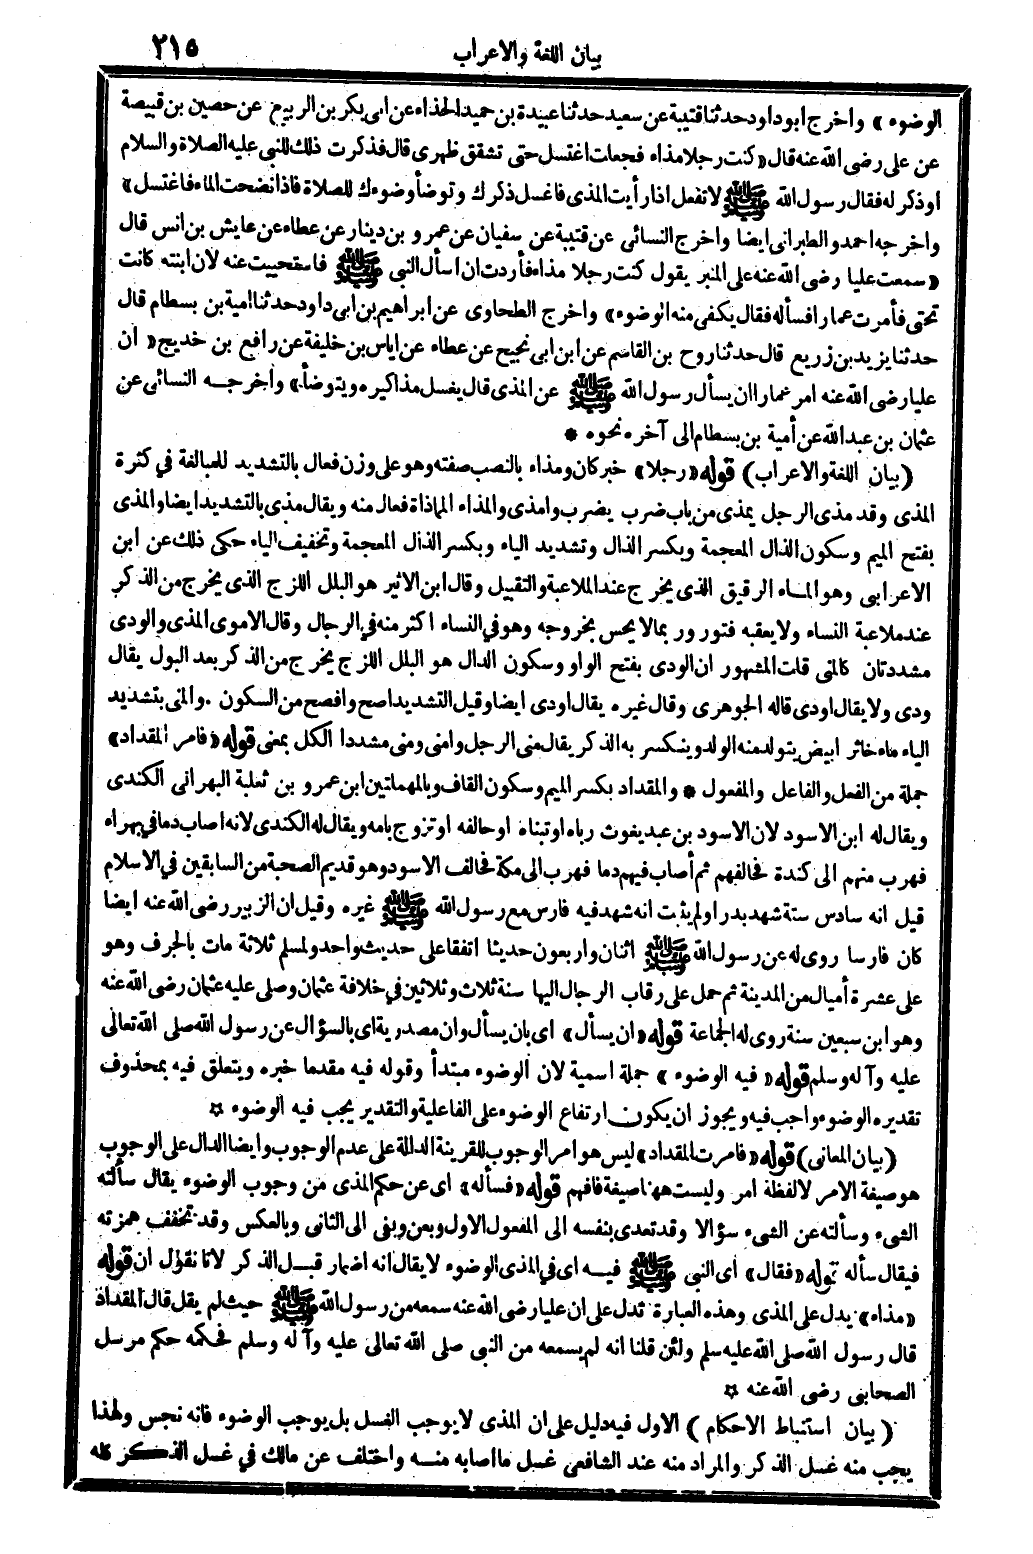 بيان اللغة والاعراب ٢١٥
الوضوء » واخرج ابو داود حدثنا قتيبة عن سعيد حدثنا عبيدة بن حميد الحذاء عن ابى بكر بن الربيع عن حصين بن قبيصة
عن على رضى الله عنه قال « كنت رجلا مذاء فجعلت اغتسل حتى تشقق ظهرى قال فذكرت ذلك للنبى عليه الصلاة والسلام
او ذكر له فقال رسول الله ﷺ لا تفعل اذا رأيت المذى فاغسل ذكرك وتوضأ وضوءك للصلاة فاذا نضحت الماء فاغتسل »
واخرجه احمد والطبرانى ايضا واخرج النسائى عن قتيبة عن سفيان عن عمرو بن دينار عن عطاء عن عايش بن انس قال
« سمعت عليا رضى الله عنه على المنبر يقول كنت رجلا مذاء فأردت ان اسأل النبى ﷺ فاستحييت عنه لان ابنته كانت
تحتى فأمرت عمارا فسأله فقال يكفى منه الوضوء » واخرج الطحاوى عن ابراهيم بن ابى داود حدثنا امية بن بسطام قال
حدثنا يزيد بن زريع قال حدثنا روح بن القاسم عن ابن ابى نجيح عن عطاء عن اياس بن خليفة عن رافع بن خديج « ان
عليا رضى الله عنه امر عمارا ان يسأل رسول الله ﷺ عن المذى قال يغسل مذاكيره ويتوضأ » وأخرجه النسائى عن
عثمان بن عبد الله عن أمية بن بسطام الى آخره نحوه *
( بيان اللغة والاعراب ) قوله « رجلا » خبر كان ومذاء بالنصب صفته وهو على وزن فعال بالتشديد للمبالغة في كثرة
المذى وقد مذى الرجل يمذى من باب ضرب يضرب وامذى والمذاء المماذاة فعال منه ويقال مذى بالتشديد ايضا والمذى
بفتح الميم وسكون الذال المعجمة وبكسر الذال وتشديد الياء وبكسر الذال المعجمة وتخفيف الياء حكى ذلك عن ابن
الاعرابى وهو الماء الرقيق الذى يخرج عند الملاعبة والتقبيل وقال ابن الاثير هو البلل اللزج الذى يخرج من الذكر
عند ملاعبة النساء ولا يعقبه فتور وربما لا يحس بخروجه وهو في النساء اكثر منه في الرجال وقال الاموى المذى والودى
مشددتان كالمنى قلت المشهور ان الودى بفتح الواو وسكون الدال هو البلل اللزج يخرج من الذكر بعد البول يقال
ودى ولا يقال اودى قاله الجوهرى وقال غيره يقال اودى ايضا وقيل التشديد اصح وافصح من السكون . والمنى بتشديد
الياء ماء خاثر ابيض يتولد منه الولد وينكسر به الذكر يقال منى الرجل وامنى ومنى مشددا الكل بمعنى قوله « فامر المقداد »
جملة من الفعل والفاعل والمفعول * والمقداد بكسر الميم وسكون القاف وبالمهملتين ابن عمرو بن ثعلبة البهرانى الكندى
ويقال له ابن الاسود لان الاسود بن عبد يغوث رباه او تبناه او حالفه او تزوج بامه ويقال له الكندى لانه اصاب دما في بهراء
فهرب منهم الى كندة فحالفهم ثم أصاب فيهم دما فهرب الى مكة فحالف الاسود وهو قديم الصحبة من السابقين في الاسلام
قيل انه سادس ستة شهد بدرا ولم يثبت انه شهد فيه فارس مع رسول الله ﷺ غيره وقيل ان الزبير رضى الله عنه ايضا
كان فارسا روى له عن رسول الله ﷺ اثنان واربعون حديثا اتفقا على حديث واحد ولمسلم ثلاثة مات بالجرف وهو
على عشرة أميال من المدينة ثم حمل على رقاب الرجال اليها سنة ثلاث وثلاثين في خلافة عثمان وصلى عليه عثمان رضى الله عنه
وهو ابن سبعين سنة روى له الجماعة قوله « ان يسأل » اى بان يسأل وان مصدرية اى بالسؤال عن رسول الله صلى الله تعالى
عليه وآله وسلم قوله « فيه الوضوء » جملة اسمية لان الوضوء مبتدأ وقوله فيه مقدما خبره ويتعلق فيه بمحذوف
تقديره الوضوء واجب فيه ويجوز ان يكون ارتفاع الوضوء على الفاعلية والتقدير يجب فيه الوضوء ☆
( بيان المعانى ) قوله « فامرت المقداد » ليس هو امر الوجوب للقرينة الدالة على عدم الوجوب وايضا الدال على الوجوب
هو صيغة الامر لا لفظة امر وليست ههنا صيغة فافهم قوله « فسأله » اى عن حكم المذى من وجوب الوضوء يقال سألته
الشىء وسألته عن الشىء سؤالا وقد تعدى بنفسه الى المفعول الاول وبعن وبفى الى الثانى وبالعكس وقد تخفف همزته
فيقال سأله قوله « فقال » اى النبى ﷺ فيه اى في المذى الوضوء لا يقال انه اضمار قبل الذكر لانا نقول ان قوله
« مذاء » يدل على المذى وهذه العبارة تدل على ان عليا رضى الله عنه سمعه من رسول الله ﷺ حيث لم يقل قال المقداد
قال رسول الله صلى الله عليه سلم ولئن قلنا انه لم يسمعه من النبى صلى الله تعالى عليه وآله وسلم فحكمه حكم مرسل
الصحابى رضى الله عنه ☆
( بيان استنباط الاحكام ) الاول فيه دليل على ان المذى لا يوجب الغسل بل يوجب الوضوء فانه نجس ولهذا
يجب منه غسل الذكر والمراد منه عند الشافعى غسل ما اصابه منه واختلف عن مالك في غسل الذكر كله